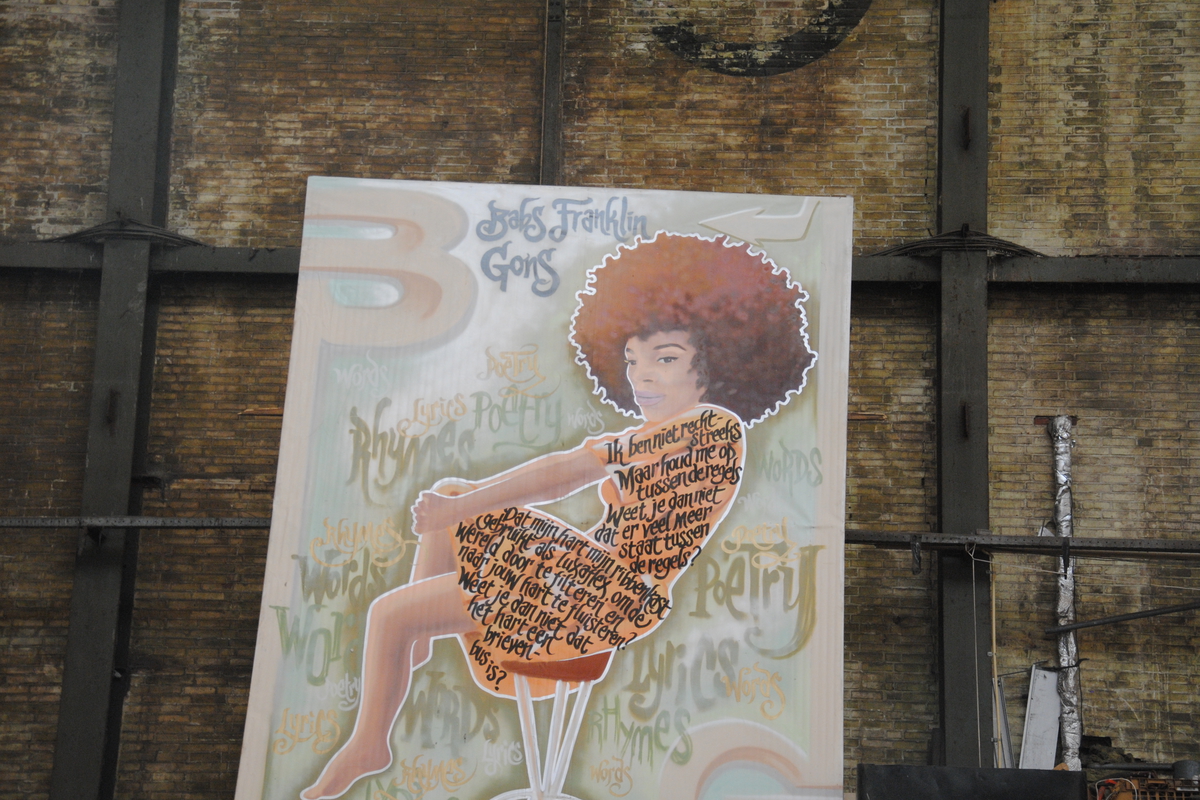 B
Babs Franklin
Gons
Words
Poetry
Lyrics
Poetry
Words
Rhymes
Words
Ik ben niet recht-
streeks
Maar houd me op
tussen de regels
Weet je dan niet
dat er veel meer
staat tussen
de regels?
Dat mijn hart mijn ribbenkast
gebruikt als luxaflex, om de
wereld door te filteren en
naar jouw hart te fluisteren?
Weet je dan niet dat
het hart een
brieven
bus is?
Rhymes
Words
Poetry
Lyrics
Words
Poetry
Lyrics
Words
Words
Lyrics
Rhymes
Rhymes
Words